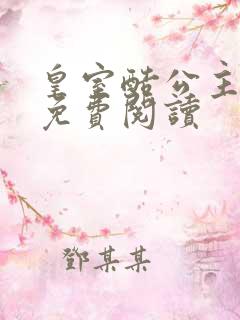 皇室酷公主
免費閱讀
鄧某某